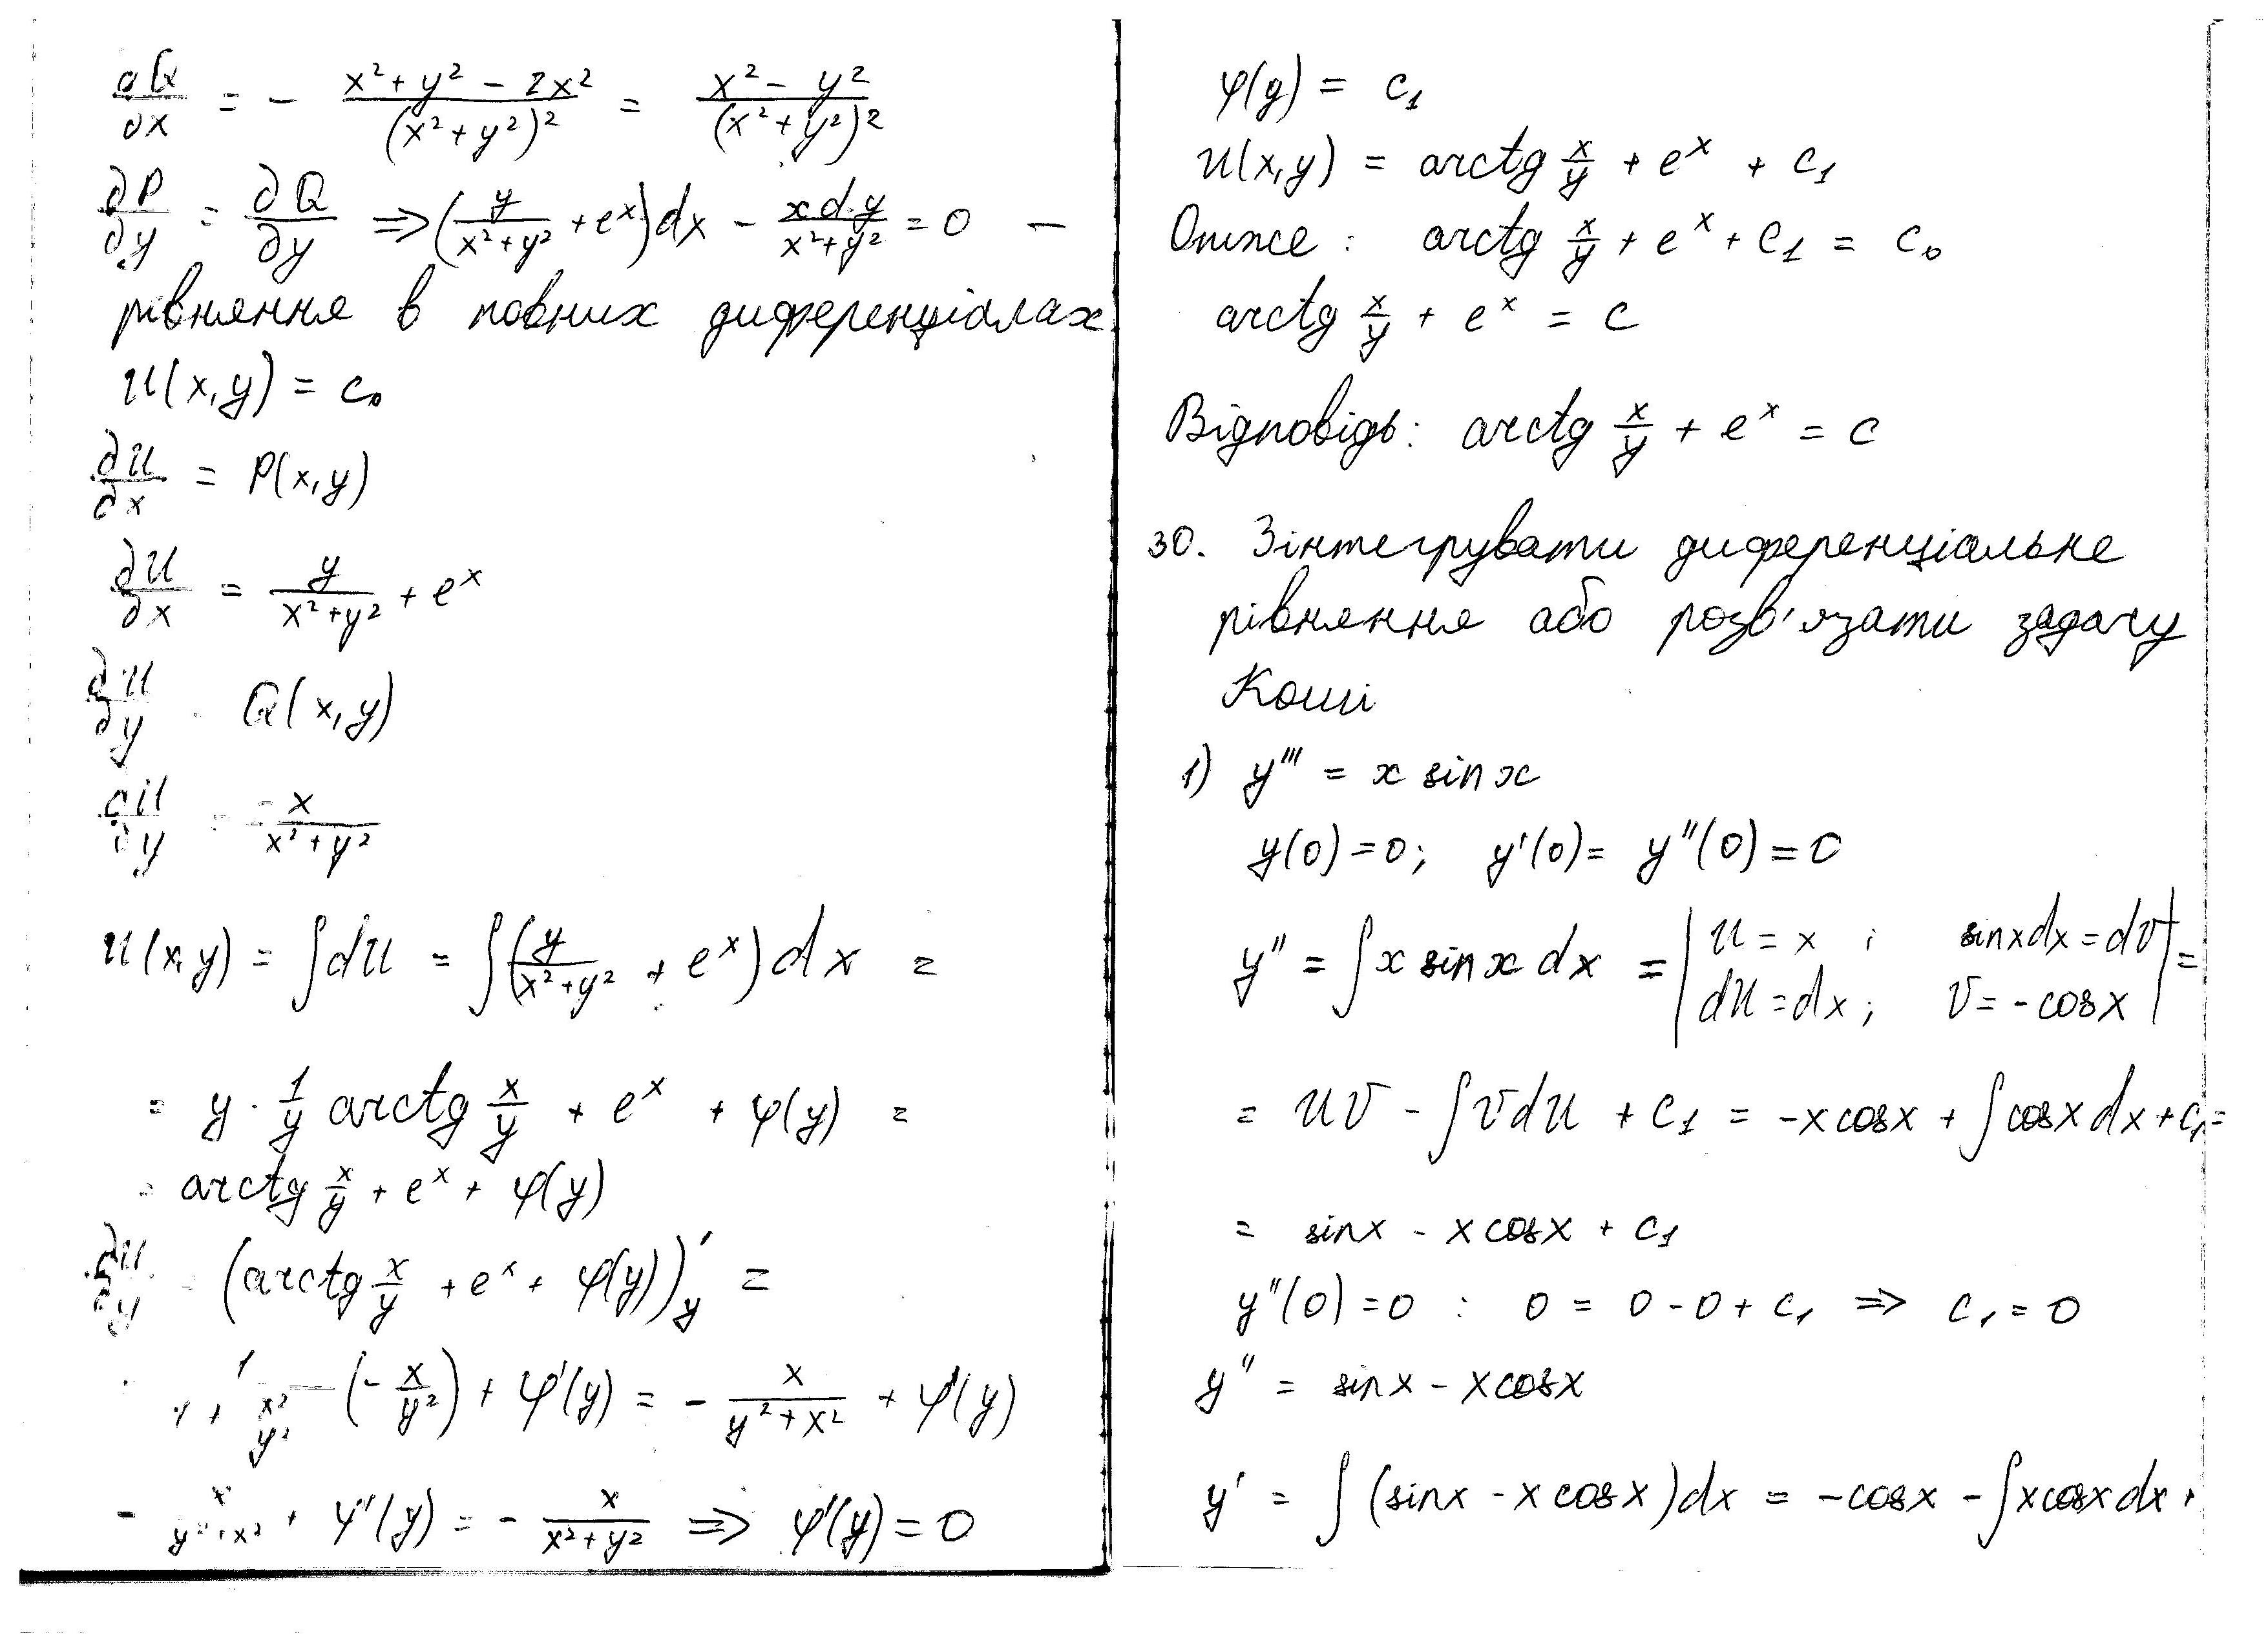 ∂Q/∂x = - (x² + y² - 2x²)/(x² + y²)² = (x² - y²)/(x² + y²)²
∂P/∂y = ∂Q/∂y ⇒ (y/(x² + y²) + eˣ)dx - xdy/(x² + y²) = 0 —
рівняння в повних диференціалах
U(x,y) = c₀
∂U/∂x = P(x,y)
∂U/∂x = y/(x² + y²) + eˣ
∂U/∂y = Q(x,y)
∂U/∂y = - x/(x² + y²)
U(x,y) = ∫dU = ∫(y/(x² + y²) + eˣ)dx =
= y · 1/y arctg x/y + eˣ + φ(y) =
= arctg x/y + eˣ + φ(y)
∂U/∂y = (arctg x/y + eˣ + φ(y))'y =
= 1/(1 + x²/y²) (- x/y²) + φ'(y) = - x/(y² + x²) + φ'(y)
- x/(y² + x²) + φ'(y) = - x/(x² + y²) ⇒ φ'(y) = 0
φ(y) = c₁
U(x,y) = arctg x/y + eˣ + c₁
Отже: arctg x/y + eˣ + c₁ = c₀
arctg x/y + eˣ = c
Відповідь: arctg x/y + eˣ = c
30. Зінтегрувати диференціальне
рівняння або розв'язати задачу
Коші
1) y''' = x sin x
y(0) = 0; y'(0) = y''(0) = 0
y'' = ∫x sin x dx = | U = x ; sinxdx = dV
dU = dx ; V = - cosx | =
= UV - ∫VdU + c₁ = -x cosx + ∫cosxdx + c₁ =
= sinx - x cosx + c₁
y''(0) = 0 : 0 = 0 - 0 + c₁ ⇒ c₁ = 0
y'' = sinx - x cosx
y' = ∫(sinx - x cosx)dx = -cosx - ∫xcosxdx +